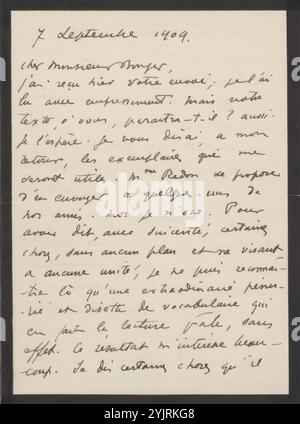 7 Septembre 1909.
cher Monsieur Bonger,
j'ai reçu hier votre envoi; je l'ai
lu avec empressement. mais votre
texte à vous, paraîtra-t-il? aussi.
Je l'espère. Je vous dirai, à mon
retour, les exemplaires qui me
seront utile. Mme Redon se propose
d'en envoyer à quelques-uns de
nos amis. moi je n'ose. Pour
avoir dit, avec sincérité, certaines
choses, sans aucun plan et ne visant
à aucune unité, je ne puis reconnaî-
tre là qu'une extraordinaire pénu-
rie et disette de vocabulaire qui
en fait la lecture pâle, sans
effet. Ce résultat m'interne beau-
coup. Je dis certaines choses qu'il
alamy
Image ID: 2YJRKG8
www.alamy.com